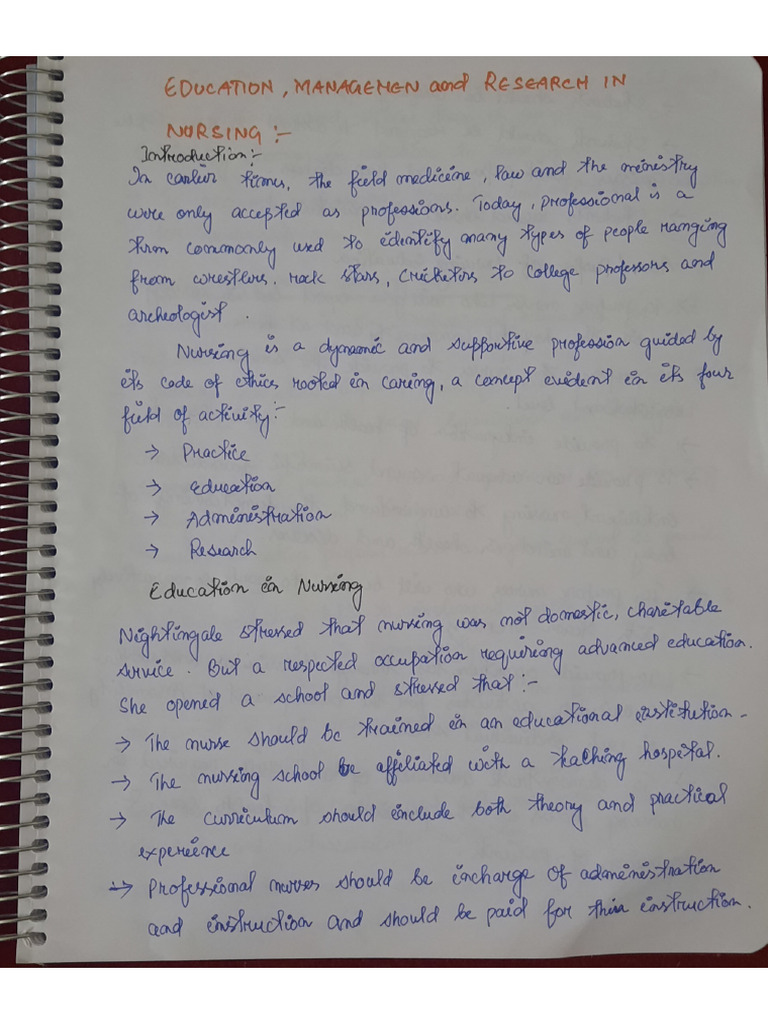 EDUCATION, MANAGEMEN and RESEARCH IN
NURSING :-
Introduction :-
In earlier times, the field medicine, law and the ministry
were only accepted as professions. Today, professional is a
term commonly used to edentify many types of people ranging
from wrestlers. rock stars, cricketers to college professors and
archeologist.
Nursing is a dynamic and supportive profession guided by
its code of ethics rooted in caring, a concept evident in its four
field of activity :-
→ Practice
→ Education
→ Administration
→ Research
Education in Nursing
Nightingale stressed that nursing was not domestic, charitable
service. But a respected occupation requiring advanced education.
She opened a school and stressed that :-
→ The nurse should be trained in an educational institution.
→ The nursing school be affiliated with a teaching hospital.
→ The curriculum should include both theory and practical
experience
→ Professional nurses should be incharge of administration
and instruction and should be paid for their instruction.